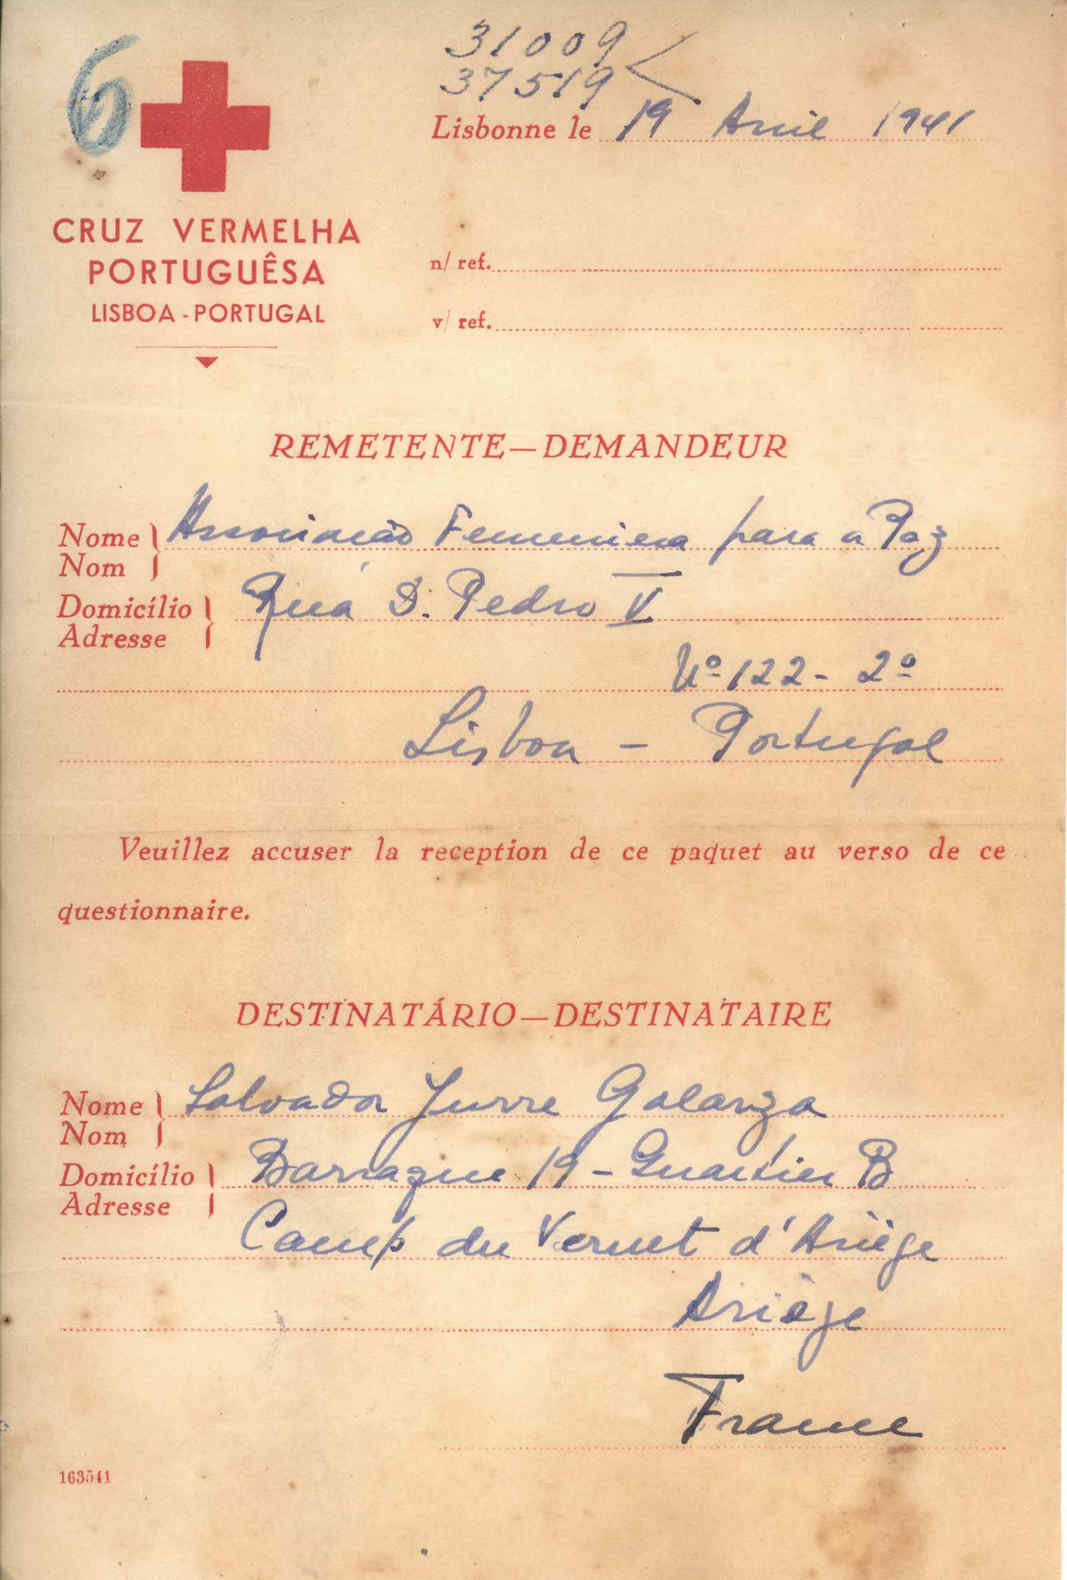 6
31009
37519
Lisbonne le 19 Avril 1941
CRUZ VERMELHA
PORTUGUÊSA
LISBOA - PORTUGAL
n/ ref.
v/ ref.
REMETENTE—DEMANDEUR
Nome Associacão Feminina para a Paz
Nom
Domicílio Rua D. Pedro V
Adresse
Nº 122 - 2º
Lisboa - Portugal
Veuillez accuser la reception de ce paquet au verso de ce
questionnaire.
DESTINATÁRIO—DESTINATAIRE
Nome Salvador Jurre Galarza
Nom
Domicílio Barraque 19 - Quartier B
Adresse
Camp du Vernet d'Ariège
Ariège
France
163541